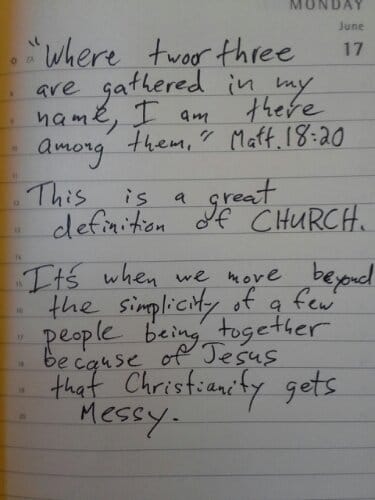 MONDAY
June
17
"Where two or three
are gathered in my
name, I am there
among them." Matt. 18:20
This is a great
definition of CHURCH.
It's when we move beyond
the simplicity of a few
people being together
because of Jesus
that Christianity gets
Messy.